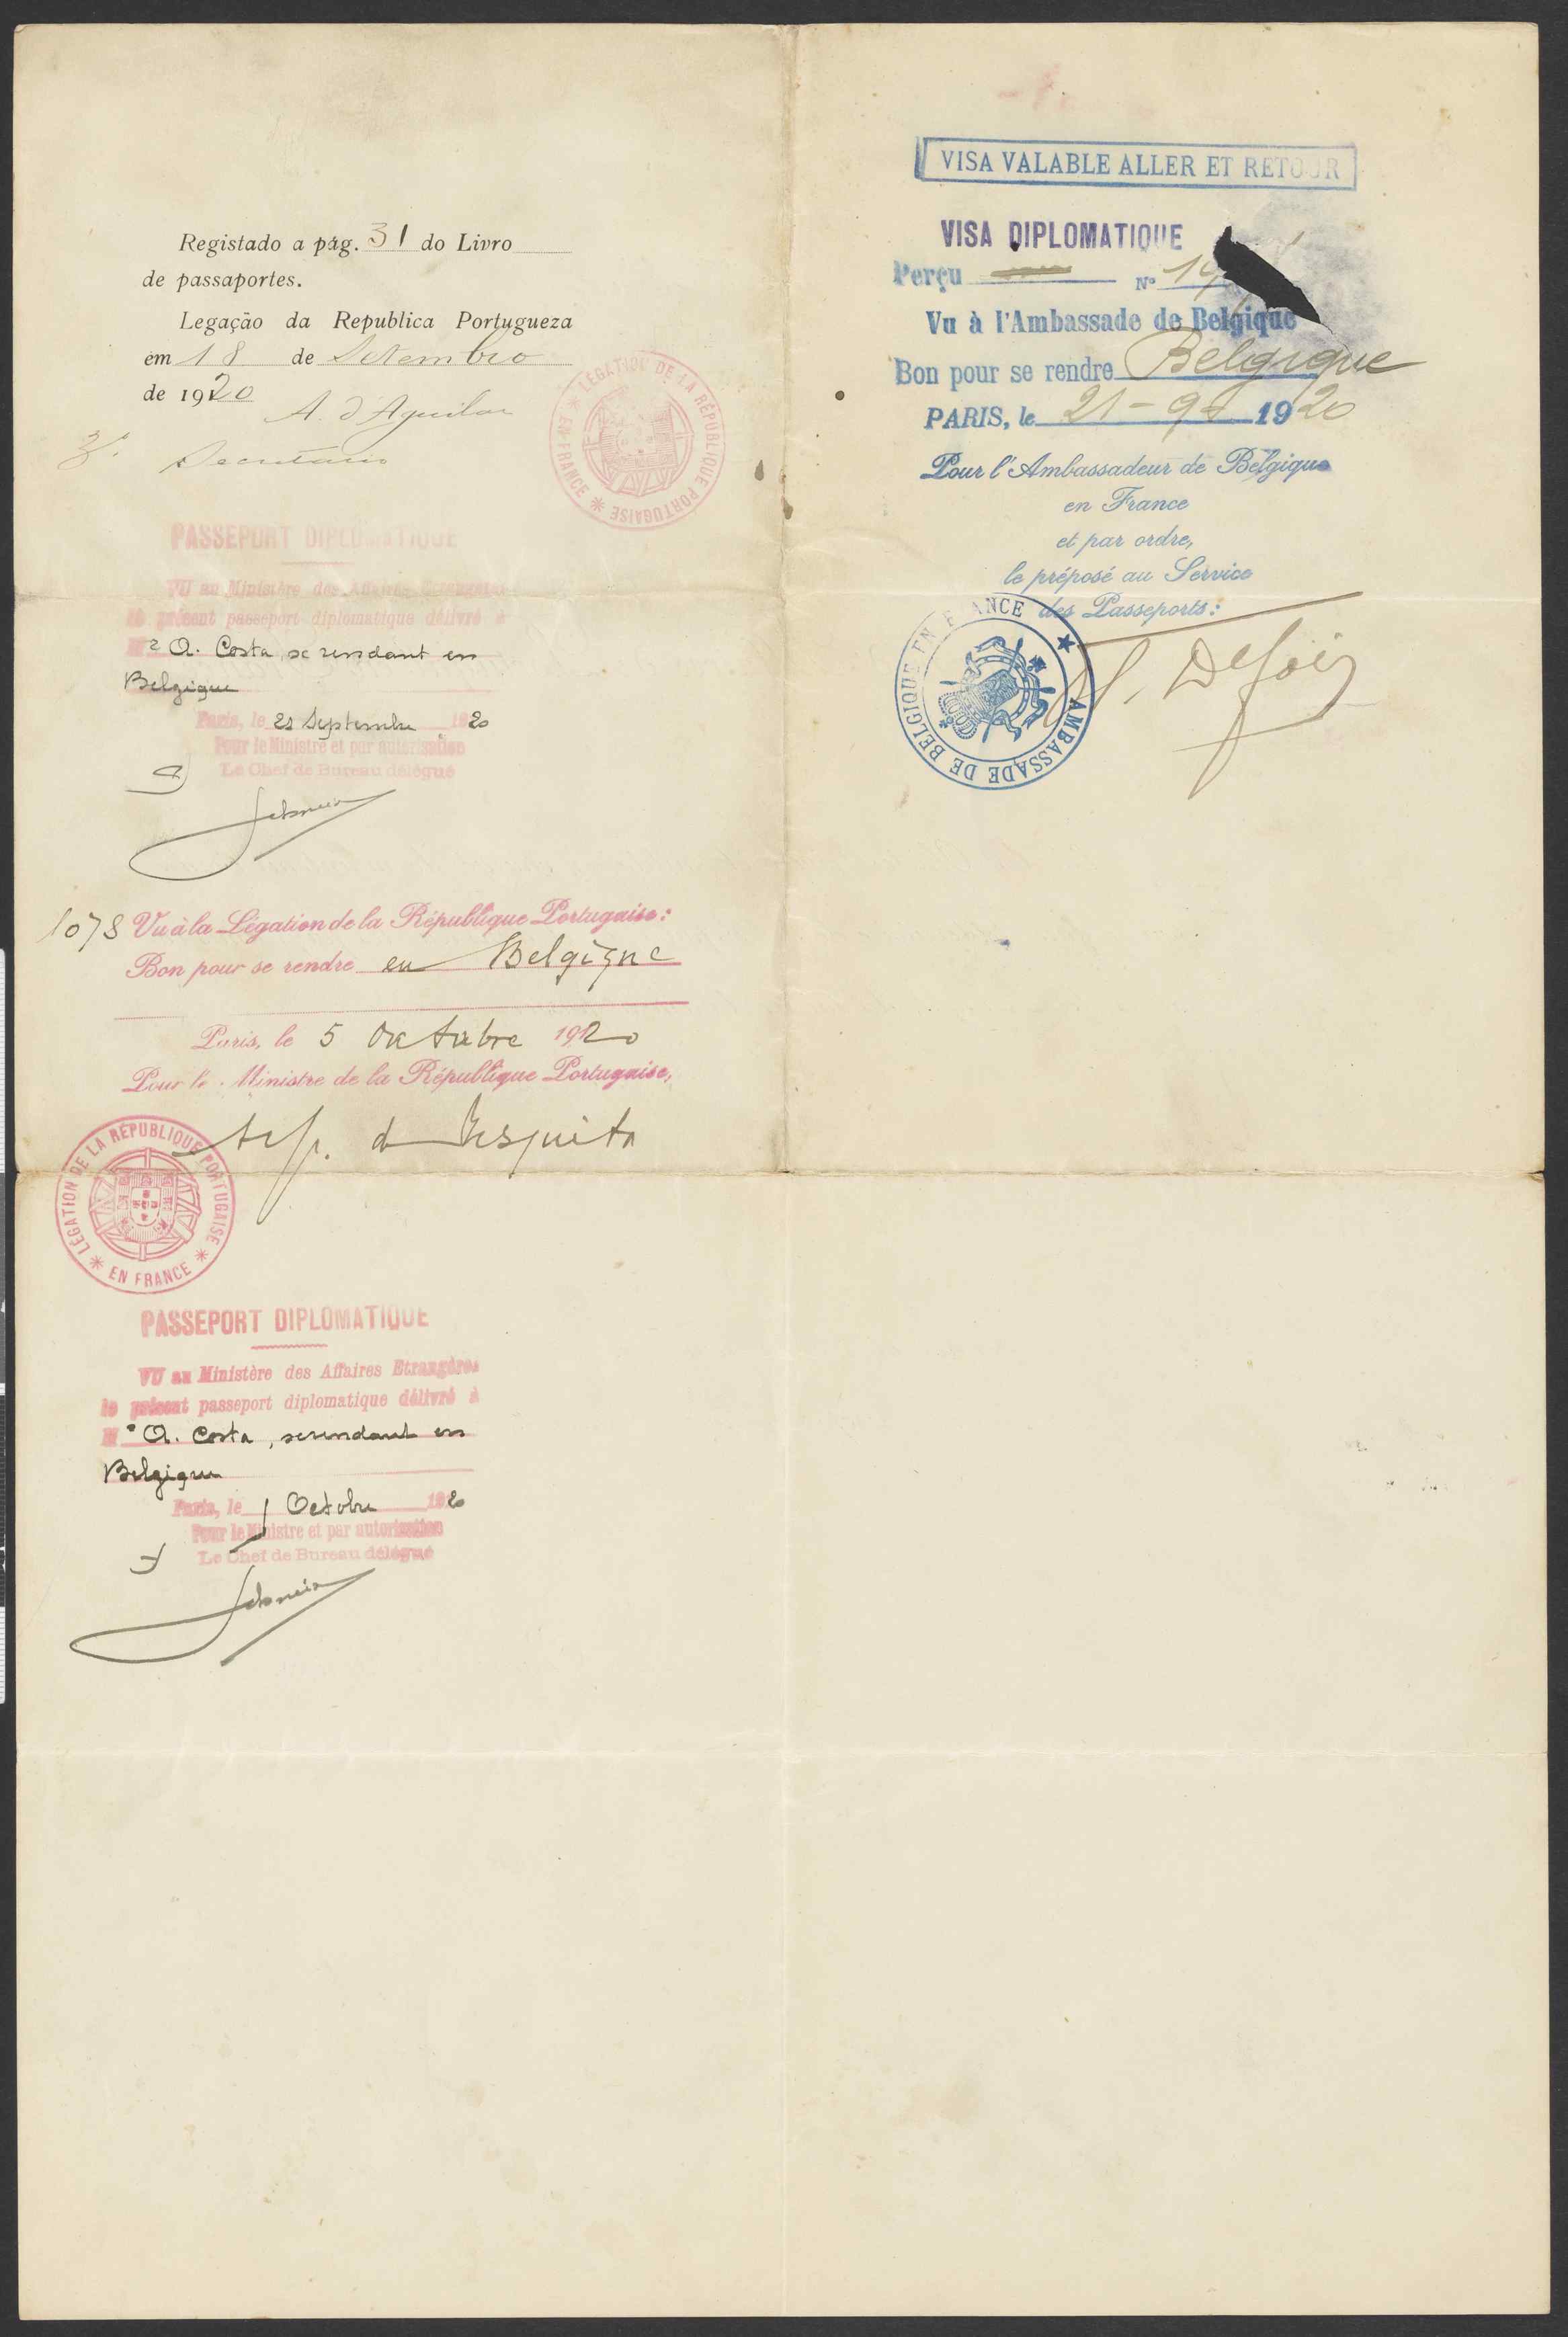 Registado a pág. 31 do Livro
de passaportes.
Legação da Republica Portugueza
em 18 de Setembro
de 1920
A. d'Aguilar
Secretario
LÉGATION DE LA RÉPUBLIQUE PORTUGAISE * EN FRANCE *
PASSEPORT DIPLOMATIQUE
VU au Ministère des Affaires Etrangères
le présent passeport diplomatique délivré à
M A. Costa se rendant en
Belgique
Paris, le 21 Septembre 1920
Pour le Ministre et par autorisation
Le Chef de Bureau délégué
1078 Vu à la Légation de la République Portugaise:
Bon pour se rendre en Belgique
Paris, le 5 Octobre 1920
Pour le Ministre de la République Portugaise,
LÉGATION DE LA RÉPUBLIQUE PORTUGAISE * EN FRANCE *
PASSEPORT DIPLOMATIQUE
VU au Ministère des Affaires Etrangères
le présent passeport diplomatique délivré à
M A. Costa, se rendant en
Belgique
Paris, le Octobre 1920
Pour le Ministre et par autorisation
Le Chef de Bureau délégué
VISA VALABLE ALLER ET RETOUR
VISA DIPLOMATIQUE
Perçu No
Vu à l'Ambassade de Belgique
Bon pour se rendre Belgique
PARIS, le 21-9- 1920
Pour l'Ambassadeur de Belgique
en France
et par ordre,
le préposé au Service
des Passeports:
AMBASSADE DE BELGIQUE EN FRANCE